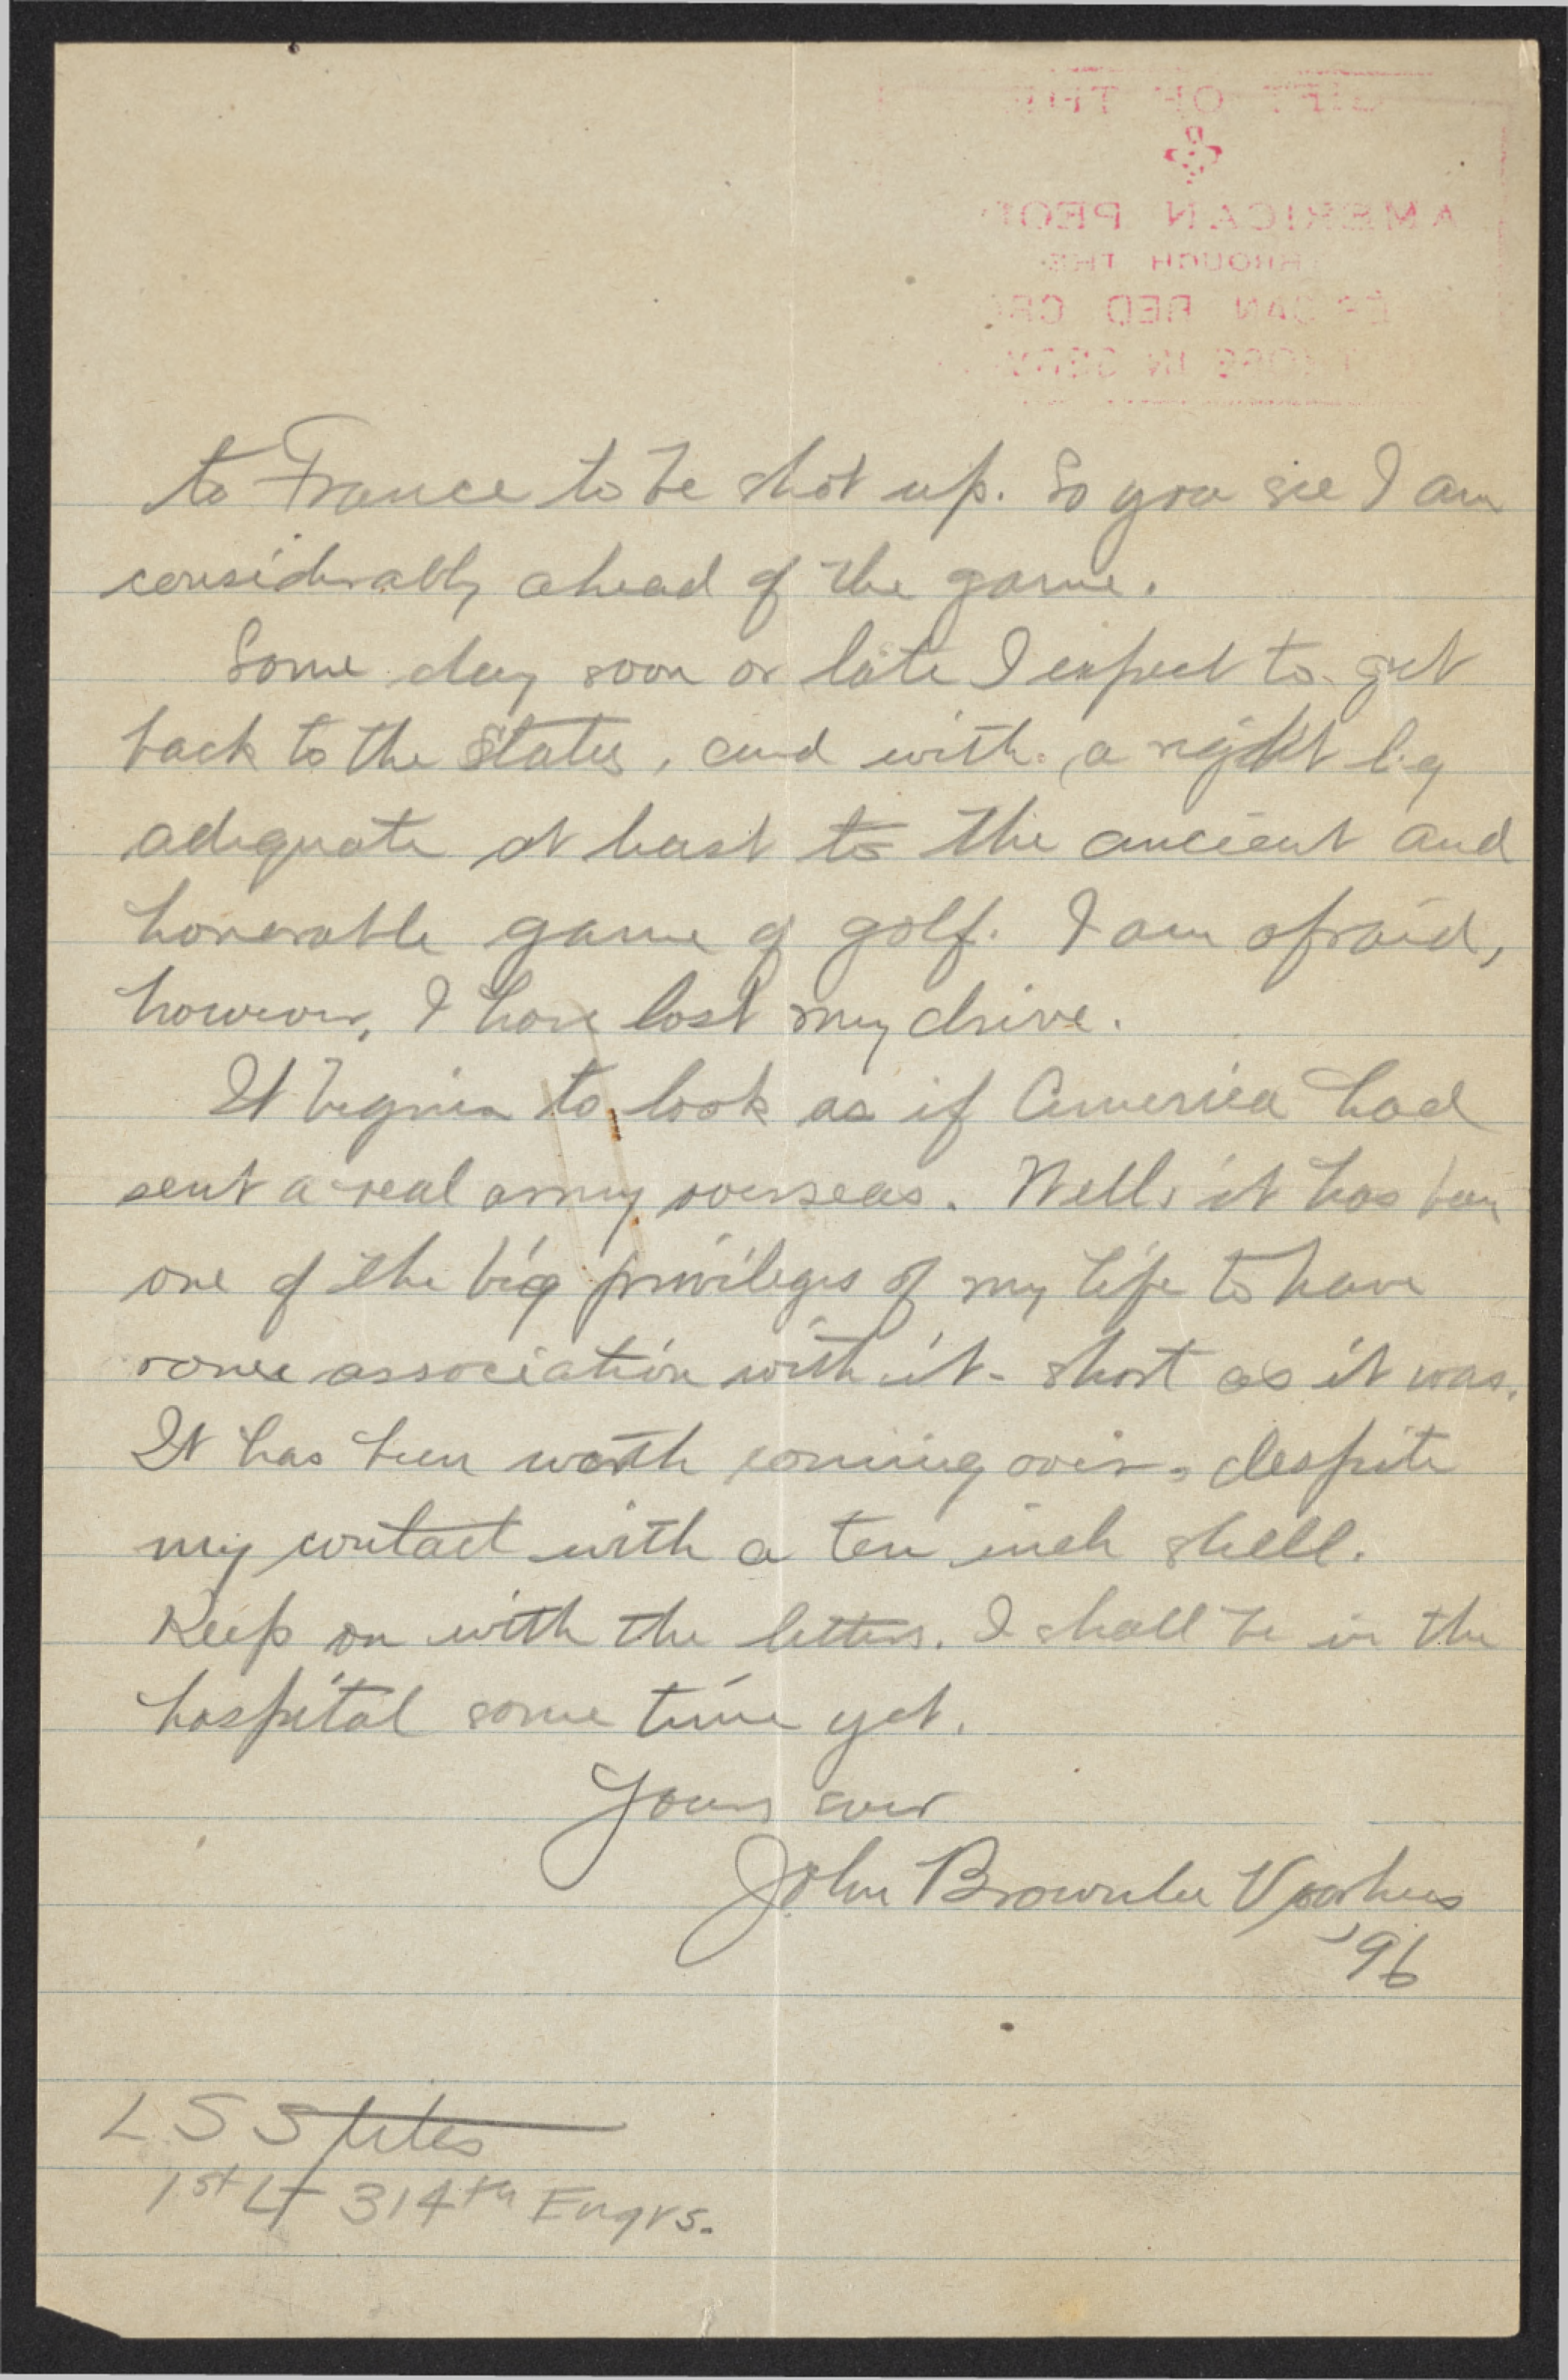 GIFT OF THE
AMERICAN PEOP
THROUGH THE
CAN RED CRO
THOSE IN
to France to be shot up. So you see I am
considerably ahead of the game.
Some day soon or late I expect to get
back to the States, and with a right leg
adequate at least to the ancient and
honorable game of golf. I am afraid,
however, I have lost my drive.
It begins to look as if America had
sent a real army overseas. Well, it has been
one of the big privileges of my life to have
some association with it - short as it was.
It has been worth coming over - despite
my contact with a ten inch shell.
Keep on with the letters. I shall be in the
hospital some time yet.
Yours ever
John Brownlee Voorhees
'96
L S Stiles
1st Lt 314th Engrs.